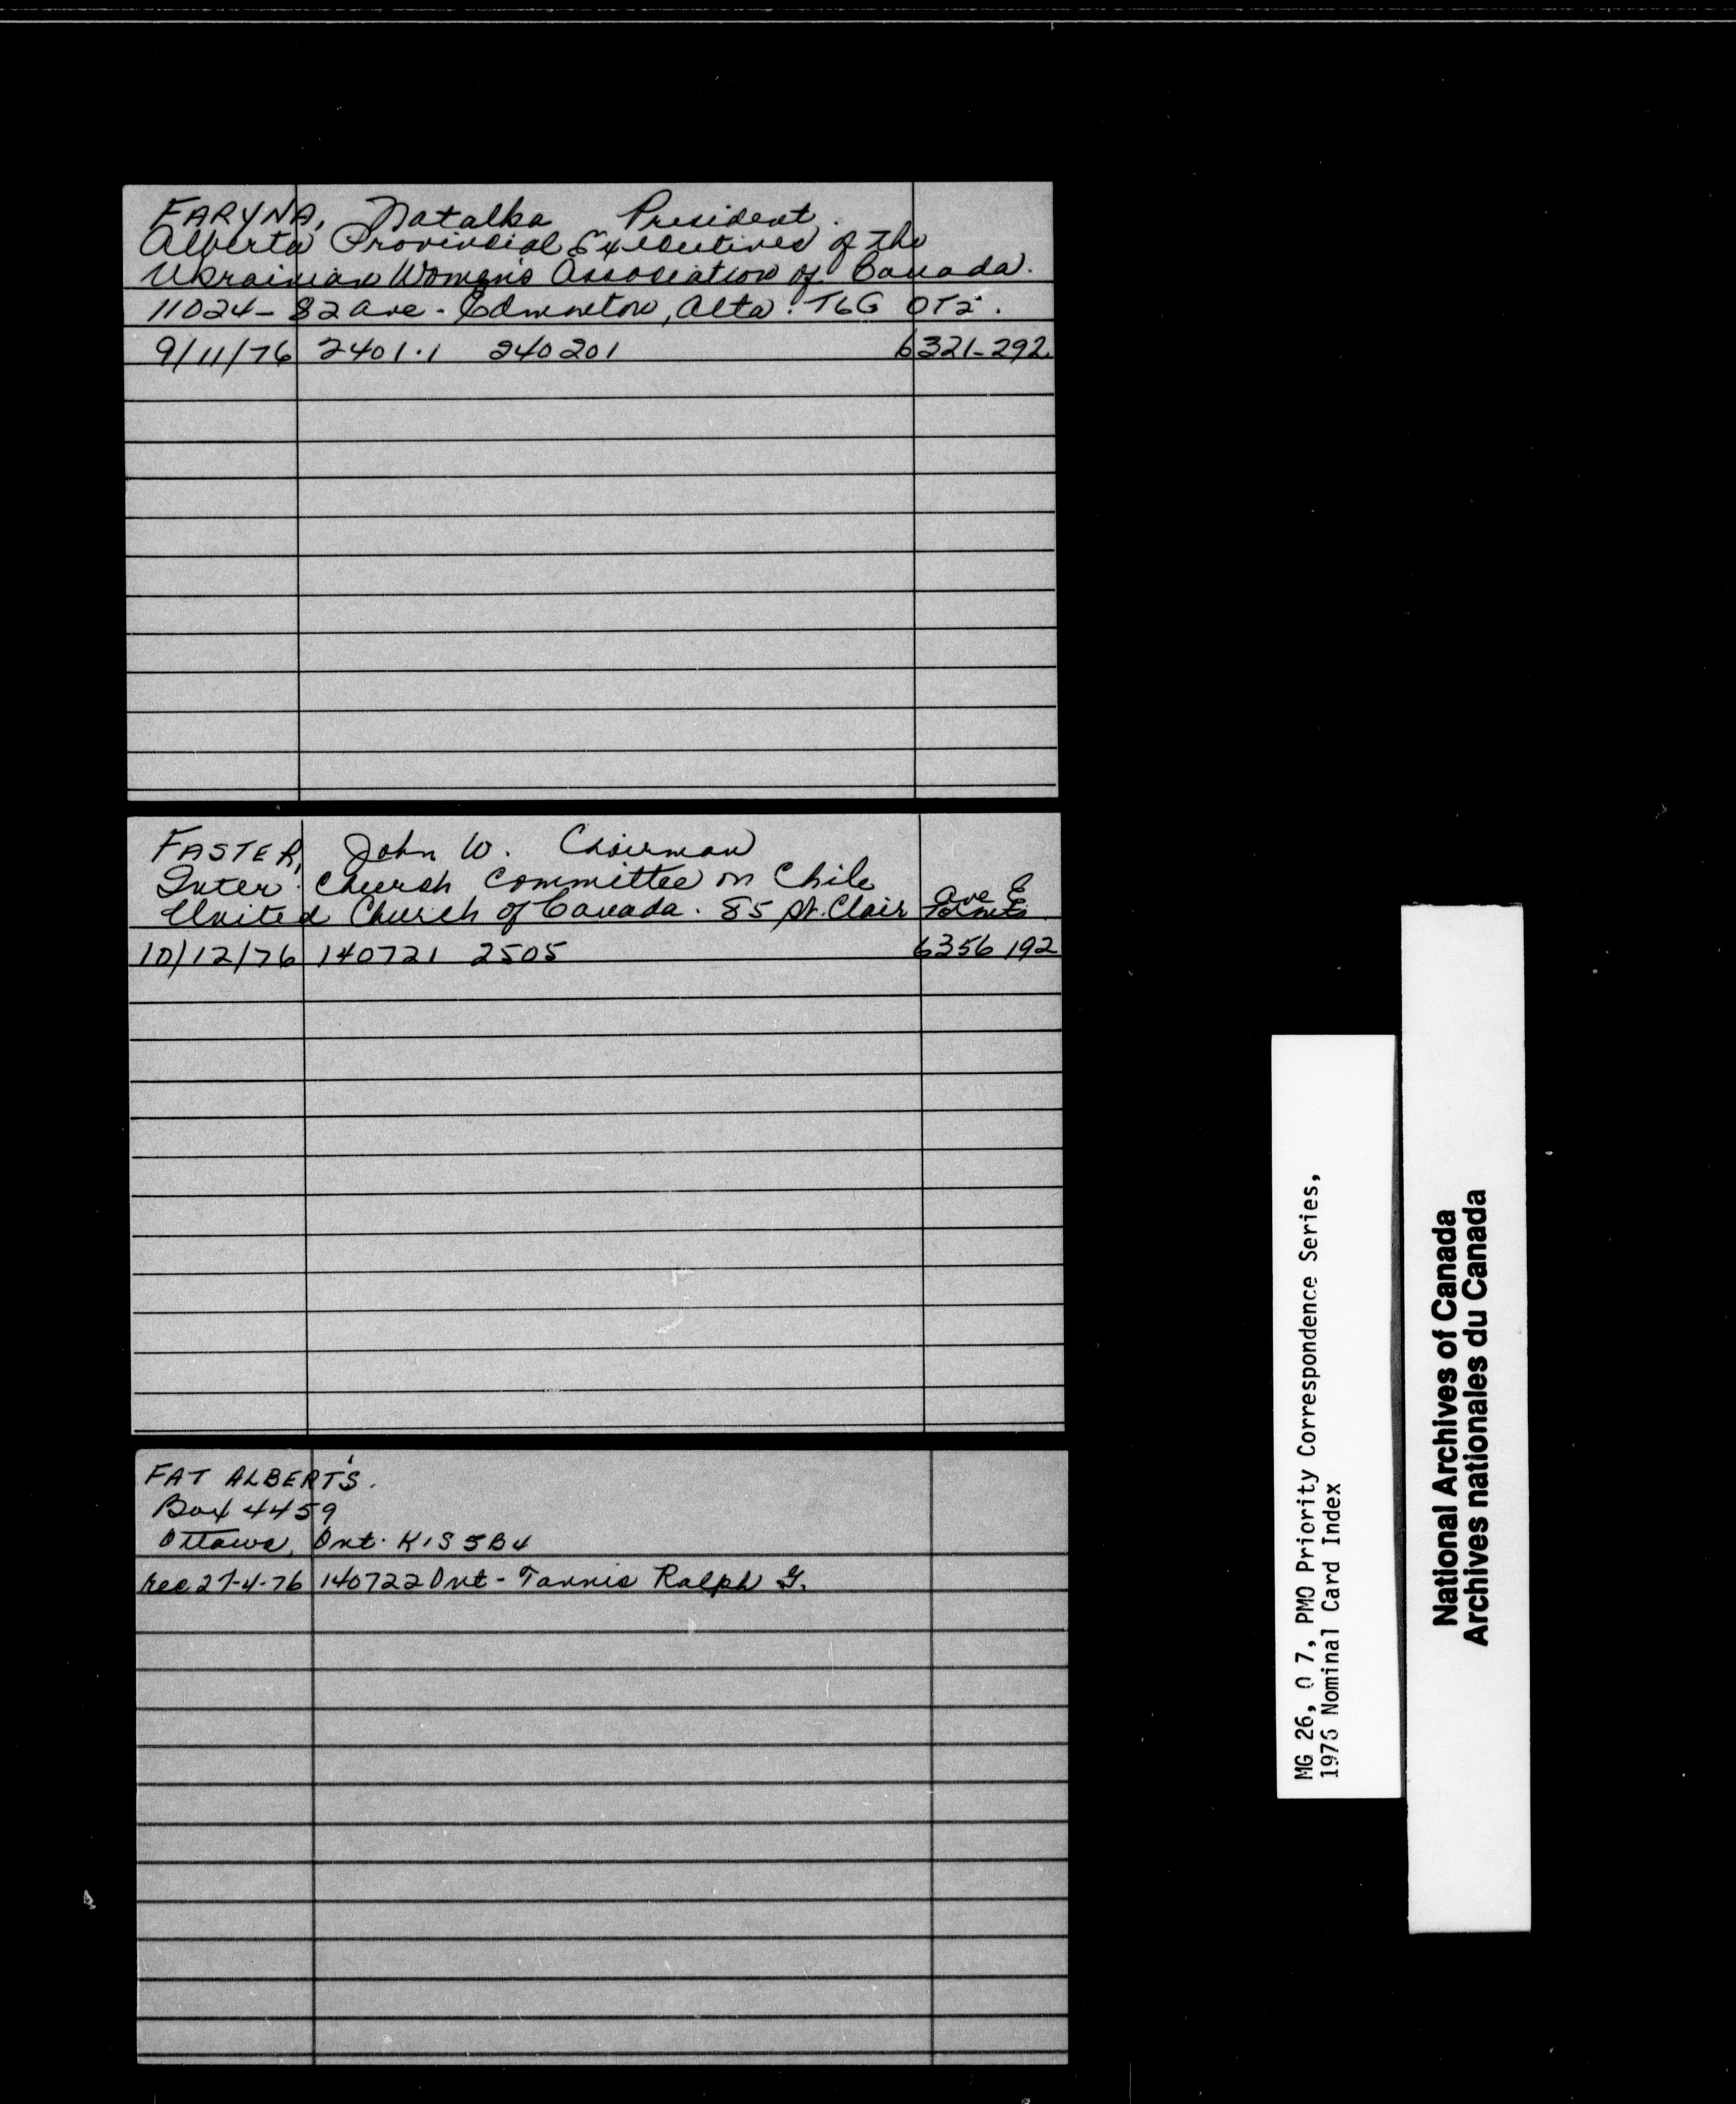 FARYNA, Natalka President.
Alberta Provincial Executives of the
Ukrainian Women's Association of Canada.
11024 - 82 Ave. Edmonton, Alta. T6G 0T2.
9/11/76 2401.1 240201 6321-292
FASTER, John W. Chairman
Inter Church Committee on Chile
United Church of Canada. 85 St. Clair Ave E Toronto
10/12/76 140721 2505 6356 192
FAT ALBERT'S.
Box 4459
Ottawa, Ont. K1S 5B4
Rec 27-4-76 140722 Ont - Tannis Ralph G.
MG 26, O 7, PMO Priority Correspondence Series,
1976 Nominal Card Index
National Archives of Canada
Archives nationales du Canada